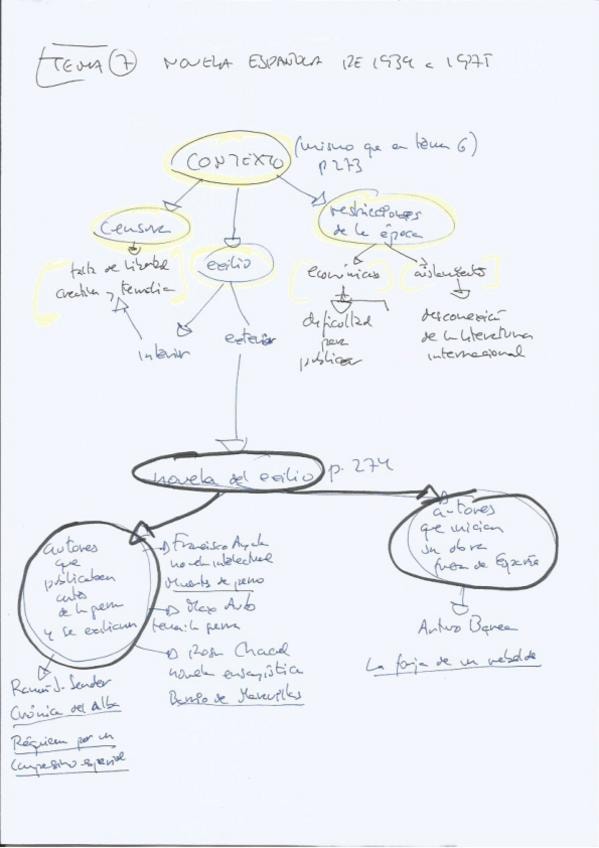 TEMA 7 NOVELA ESPAÑOLA DE 1939 a 1975
CONTEXTO
(mismo que en tema 6)
p 273
censura
falta de libertad
creativa y temática
exilio
interior
exterior
restricciones
de la época
económicas
dificultad
para
publicar
aislamiento
desconexión
de la literatura
internacional
novela del exilio p. 274
autores
que
publicaban
antes
de la guerra
y se exilian
Ramón J. Sender
Crónica del Alba
Réquiem por un
campesino español
Francisco Ayala
novela intelectual
Muertes de perro
Max Aub
tema: la guerra
Rosa Chacel
novela ensayística
Barrio de Maravillas
autores
que inician
su obra
fuera de España
Arturo Barea
La forja de un rebelde